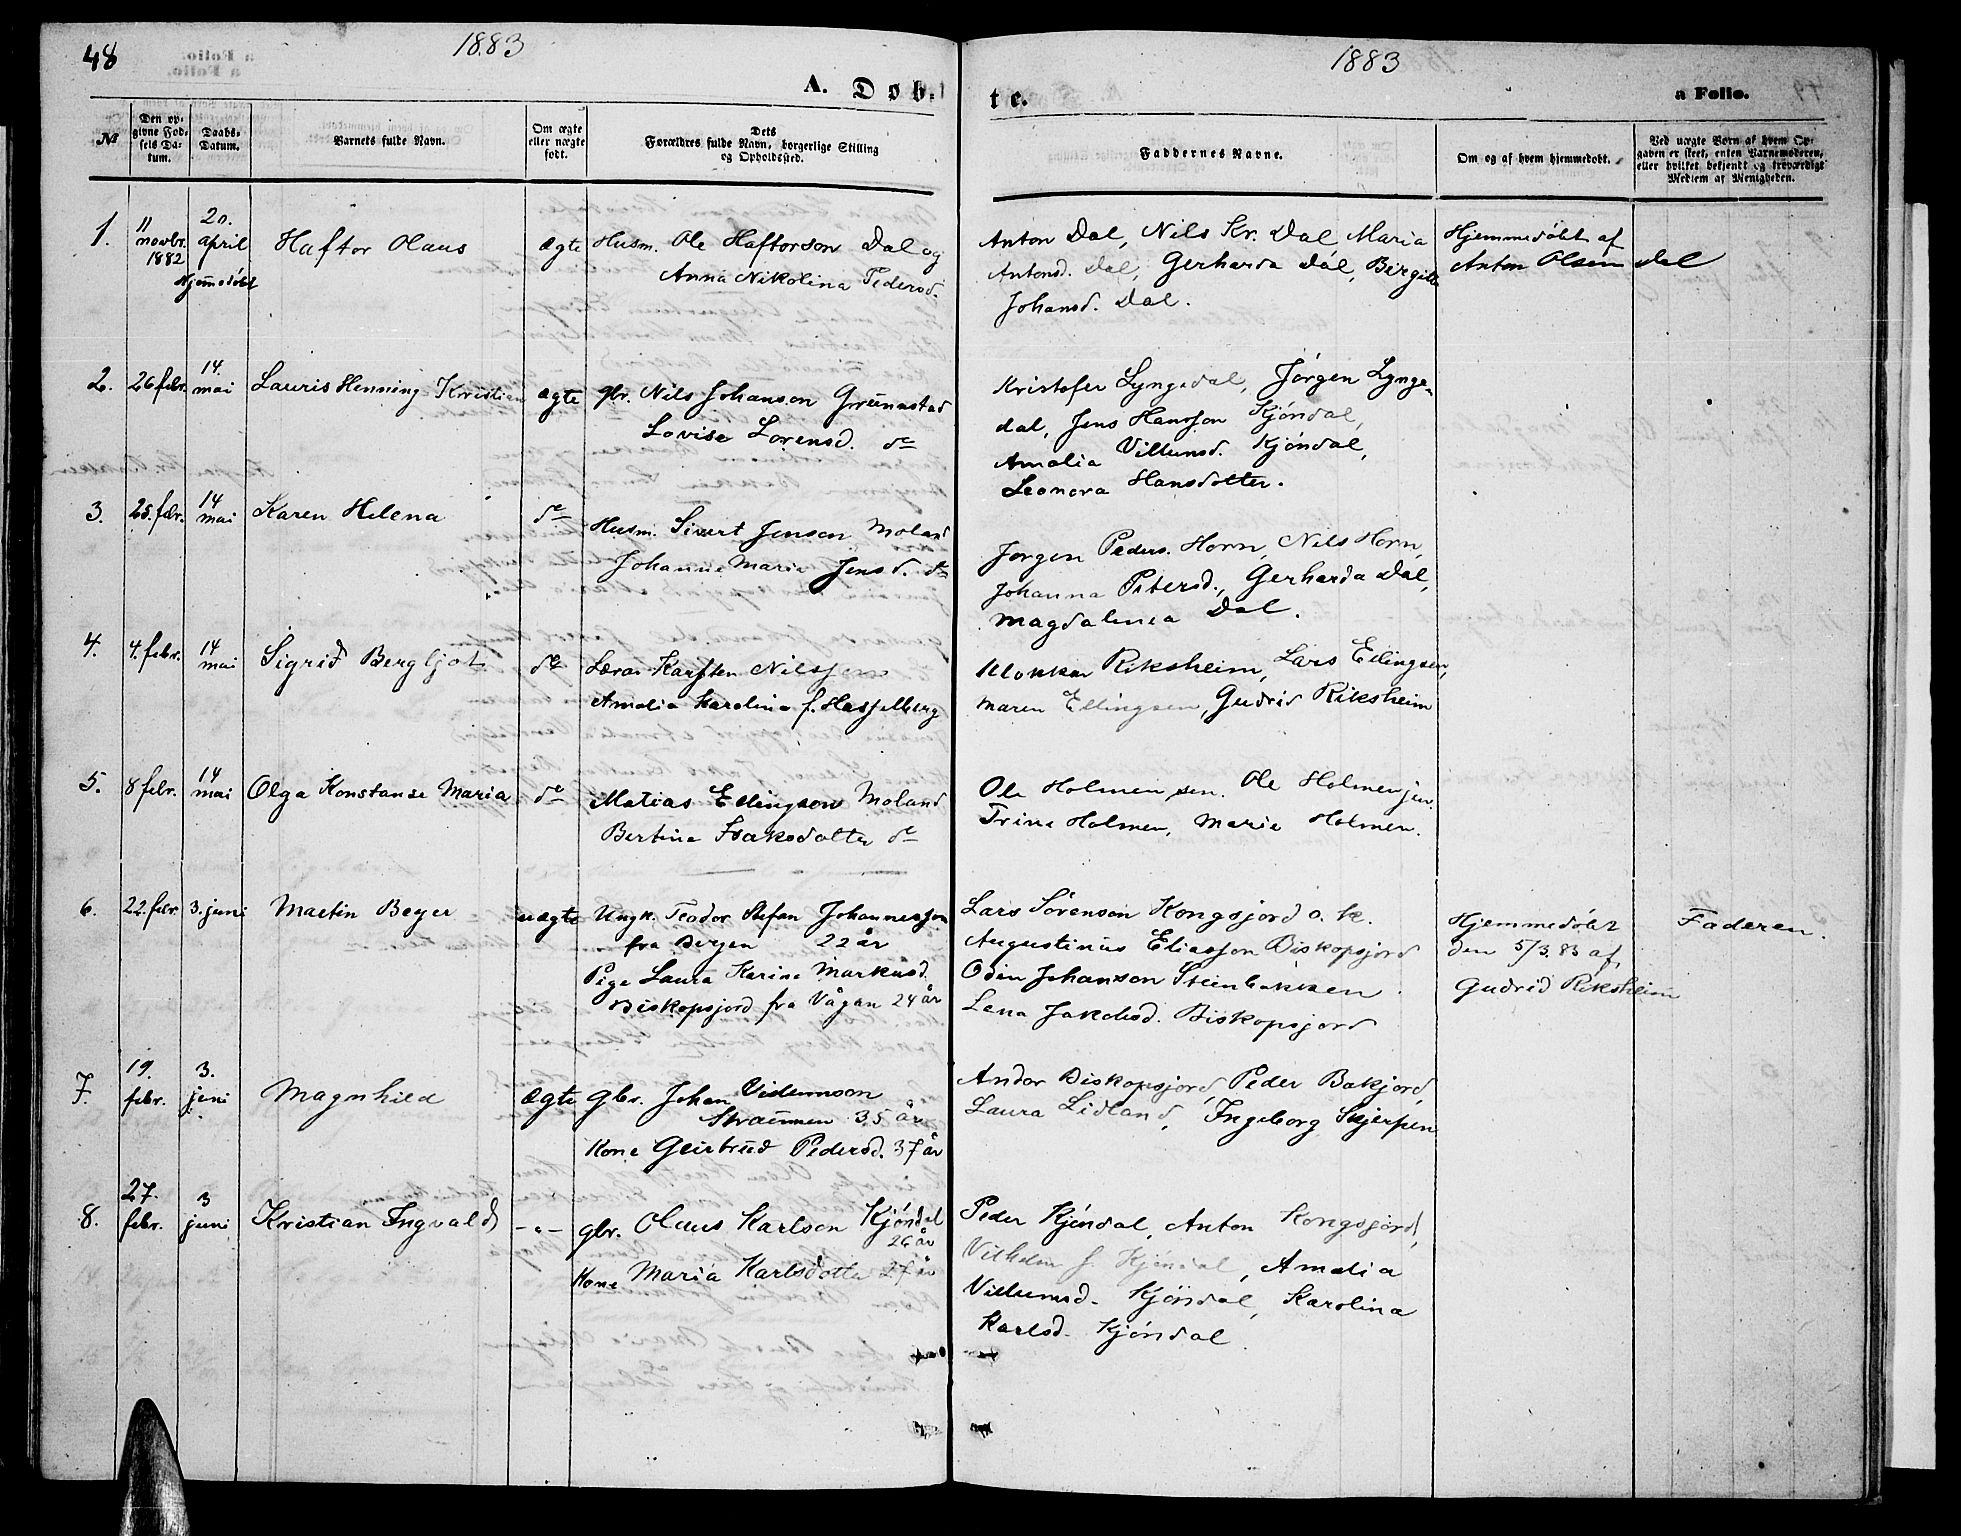 48
1883
1883
A. Døb-
te.
a Folio.
№
Den op-
givne Fød-
sels Da-
tum.
Daabs-
Datum.
Barnets fulde Navn.
Om ægte
eller uægte
født.
Dets
Forældres fulde Navn, borgerlige Stilling
og Opholdssted.
Faddernes Navne.
Om og af hvem hjemmedøbt.
Ved uægte Børn af hvem Op-
gaven er skeet, enten Barnemoderen,
eller hvilket bekjendt og troværdigt
Medlem af Menigheden.
1.
11
novbr.
1882
20.
april
Hjemmedøbt
Haftor Olaus
ægte
Husm. Ole Haftorson Dal og
Anna Nikolina Pedersd.
Anton Dal, Nils Kr. Dal, Maria
Antonsd. Dal, Gerharda Dal, Birgitte
Johansd. Dal.
Hjemmedøbt af
Anton Olsen Dal
2.
26 febr.
14.
mai
Lauris Henning Kristian
ægte
gbr. Nils Johanson Grunnstad
Lovise Lorensd. do
Kristofer Lyngedal, Jørgen Lynge-
dal, Jens Hansson Kjøndal,
Amalia Villumsd. Kjøndal,
Leonora Hansdotter.
3.
25. febr.
14
mai
Karen Helena
do
Husm. Sivert Jenson Moland
Johanna Maria Jensd. do
Jørgen Peders. Horn, Nils Horn,
Johanna Petersd., Gerharda Dal,
Magdalena Dal.
4.
4. febr.
14
mai
Sigrid Bergljot
do
Lærar Karsten Nilssen
Amalia Karolina f. Hasselberg
Klokkar Riksheim, Lars Ellingsen,
Maren Ellingsen, Gudrid Riksheim
5.
8 febr.
14
mai
Olga Konstanse Maria
do
Matias Ellingson Moland
Bertina Isaksdotter do
Ole Holmen sen. Ole Holmen jun.
Trina Holmen, Maria Holmen.
6.
22. febr.
3. juni
Martin Beyer
uægte
Ungk. Teodor Stefan Johannesson
fra Bergen 22 år
Pige Laura Karina Markusd.
Biskopsjord fra Vågan 24 år
Lars Sørenson Kongsjord o. k.
Augustinus Eliasson Biskopsjord
Odin Johanson Steinbakken
Lena Jakobsd. Biskopsjord
Hjemmedøbt
den 5/3.83 af
Gudrid Riksheim
Faderen.
7.
19.
febr.
3.
juni
Magnhild
ægte
gbr. Johan Vidumson
Straumen 35 år
Kone Geirtrud Pedersd. 37 år
Andor Biskopsjord, Peder Bakjord,
Laura Lidland, Ingeborg Skjerpen
8.
27.
febr.
3
juni
Kristian Ingvald
-"-
gbr. Olaus Karlson Kjøndal
26 år
Kone Maria Karlsdotter 27 år
Peder Kjøndal, Anton Kongsjord,
Vilhelm J. Kjøndal, Amalia
Villumsd. Kjøndal, Karolina
Karlsd. Kjøndal.